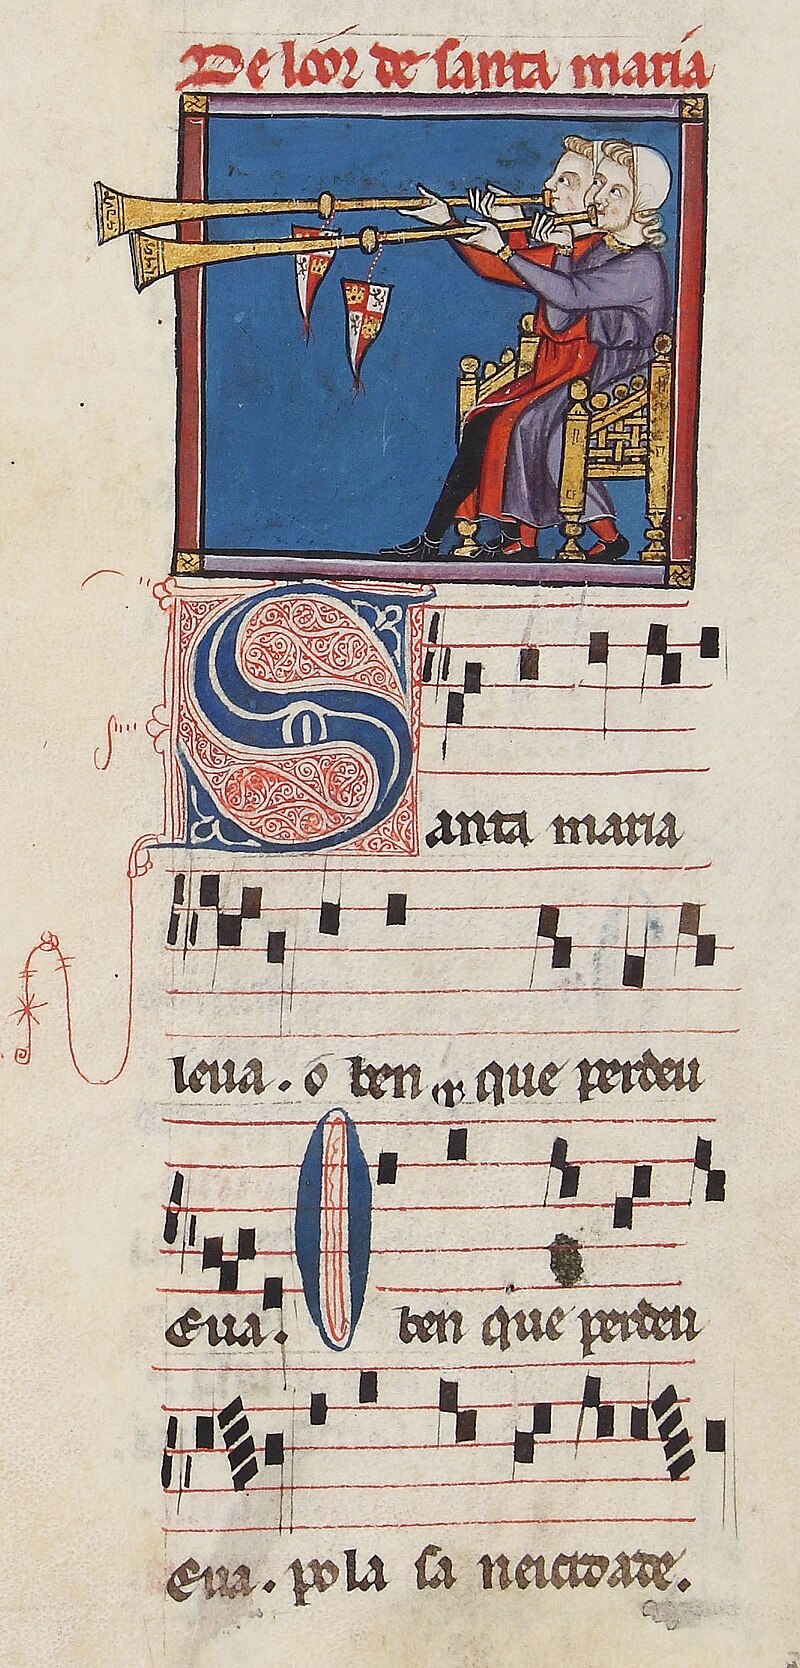 De loor de santa maria
Santa maria
leua . o ben que perdeu
Eua . O ben que perdeu
Eua . pola sa neicidade .